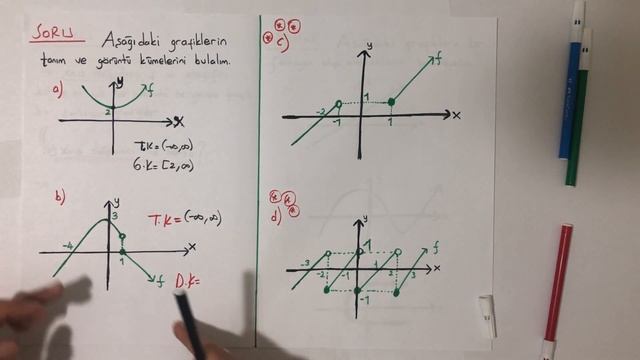 SORU Aşağıdaki grafiklerin
tanım ve görüntü kümelerini bulalım.
a)
y
f
2
x
T.K=(-∞,∞)
G.K=[2,∞)
b)
y
3
-4
1
x
f
T.K=(-∞,∞)
D.K=
c)
y
f
-2
-1
1
1
x
d)
y
f
-3
-2
-1
1
1
3
x
-1